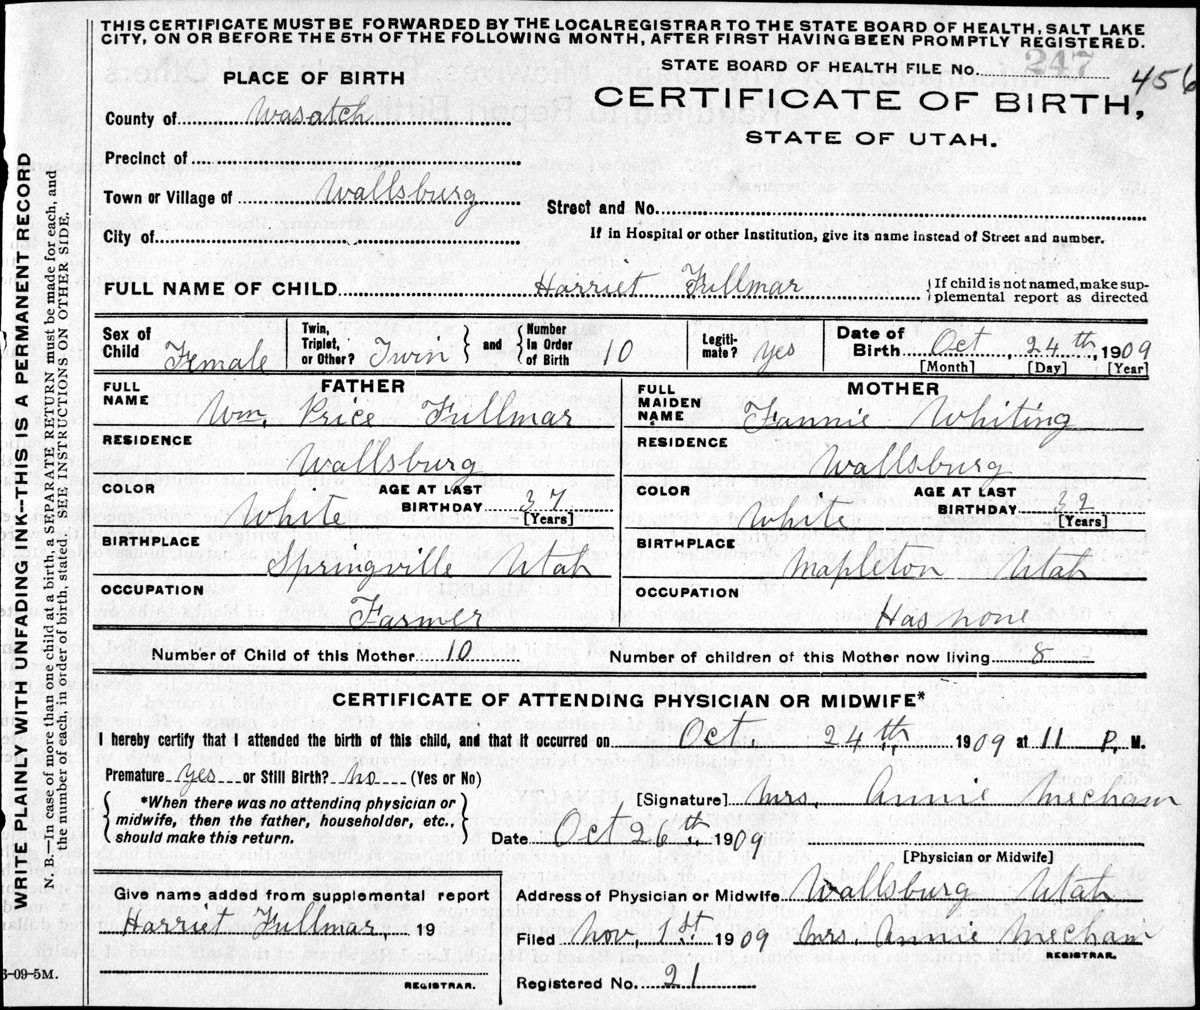 THIS CERTIFICATE MUST BE FORWARDED BY THE LOCAL REGISTRAR TO THE STATE BOARD OF HEALTH, SALT LAKE
CITY, ON OR BEFORE THE 5TH OF THE FOLLOWING MONTH, AFTER FIRST HAVING BEEN PROMPTLY REGISTERED.
PLACE OF BIRTH
STATE BOARD OF HEALTH FILE No. 247
456
CERTIFICATE OF BIRTH,
STATE OF UTAH.
County of Wasatch
Precinct of
Town or Village of Wallsburg
Street and No.
City of
If in Hospital or other Institution, give its name instead of Street and number.
FULL NAME OF CHILD Harriet Fullmar
If child is not named, make sup-
plemental report as directed
Sex of Child Female
Twin, Triplet, or Other? Twin
and Number In Order of Birth 10
Legiti-mate? yes
Date of Birth Oct 24th, 1909
[Month] [Day] [Year]
FATHER
FULL NAME Wm. Price Fullmar
RESIDENCE Wallsburg
COLOR White
AGE AT LAST BIRTHDAY 37 [Years]
BIRTHPLACE Springville Utah
OCCUPATION Farmer
MOTHER
FULL MAIDEN NAME Fannie Whiting
RESIDENCE Wallsburg
COLOR white
AGE AT LAST BIRTHDAY 32 [Years]
BIRTHPLACE Mapleton Utah
OCCUPATION Has none
Number of Child of this Mother 10
Number of children of this Mother now living 8
CERTIFICATE OF ATTENDING PHYSICIAN OR MIDWIFE*
I hereby certify that I attended the birth of this child, and that it occurred on Oct. 24th 1909 at 11 P. M.
Premature yes or Still Birth? no (Yes or No)
*When there was no attending physician or
midwife, then the father, householder, etc.,
should make this return.
[Signature] Mrs. Annie Mecham
Date Oct 26th 1909
[Physician or Midwife]
Given name added from supplemental report
Harriet Fullmar 19
REGISTRAR.
Address of Physician or Midwife Wallsburg Utah
Filed Nov. 1st 1909 Mrs. Annie Mecham
REGISTRAR.
Registered No. 21
6-09-5M.
WRITE PLAINLY WITH UNFADING INK--THIS IS A PERMANENT RECORD
N. B.--In case of more than one child at a birth, a SEPARATE RETURN must be made for each, and
the number of each, in order of birth, stated. SEE INSTRUCTIONS ON OTHER SIDE.